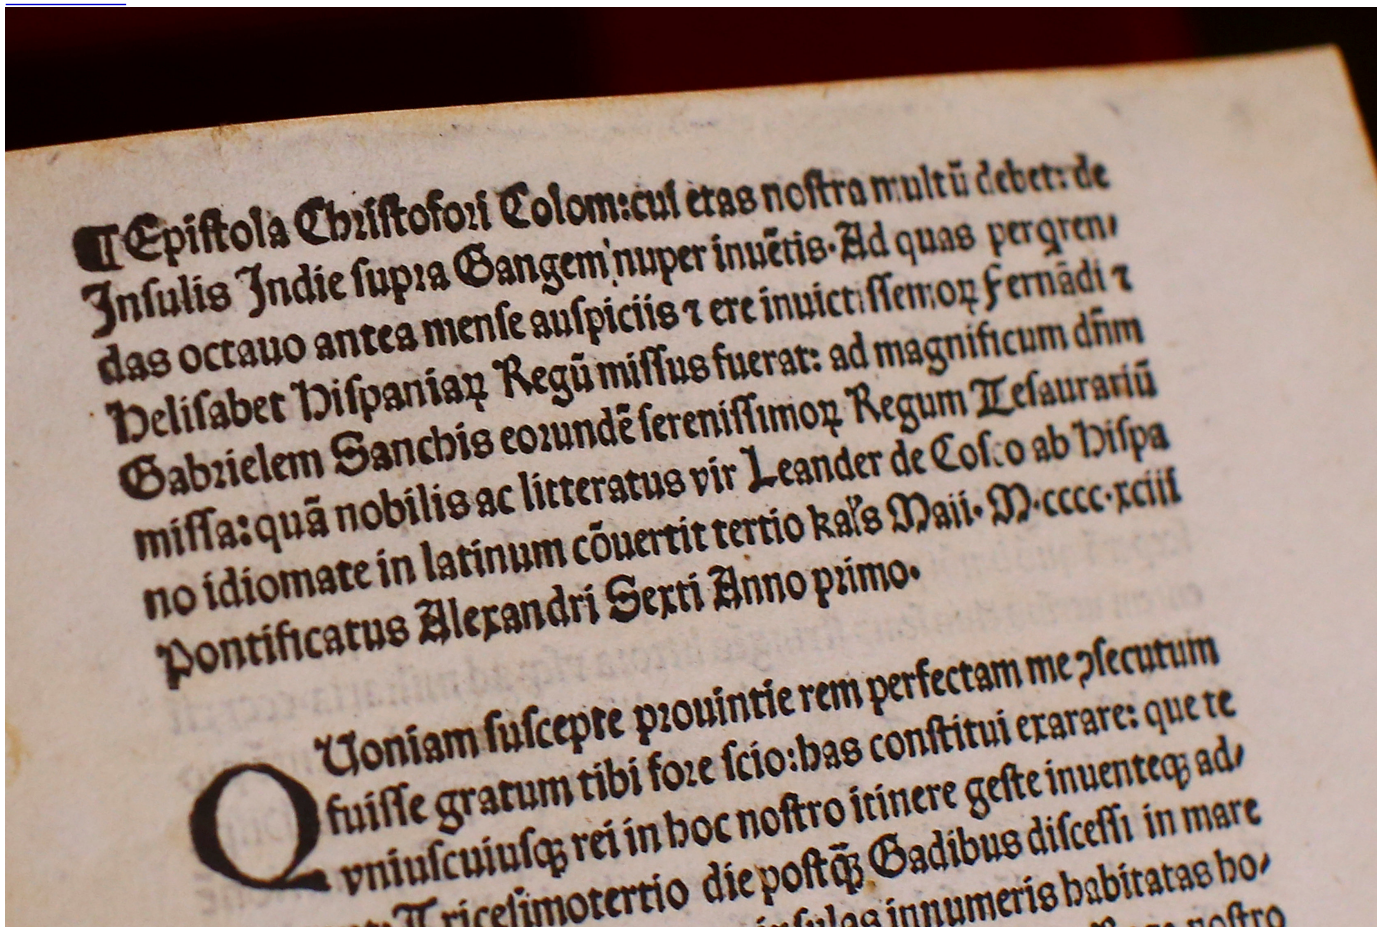 ¶ Epiſtola Chriſtofori Colom: cui etas noſtra multū debet: de
Inſulis Indie ſupra Gangem nuper inuētis. Ad quas perqren⸗
das octauo antea menſe auſpiciis ⁊ ere inuictiſſemoꝝ Fernādi ⁊
Heliſabet Hiſpaniaꝝ Regū miſſus fuerat: ad magnificum dn̄m
Gabrielem Sanchis eorundē ſereniſſimoꝝ Regum Teſaurariū
miſſa: quā nobilis ac litteratus vir Leander de Coſco ab Hiſpa
no idiomate in latinum cōuertit tertio kal's Maii. M.cccc.xciii
Pontificatus Alexandri Sexti Anno primo.
QUoniam ſuſcepte prouintie rem perfectam me ꝯſecutum
fuiſſe gratum tibi fore ſcio: has conſtitui exarare: que te
vniuſcuiuſqꝫ rei in hoc noſtro itinere geſte inuenteqꝫ ad⸗
Triceſimotertio die poſtqꝫ̄ Gadibus diſceſſi in mare
inſulas innumeris habitatas ho⸗
noſtro